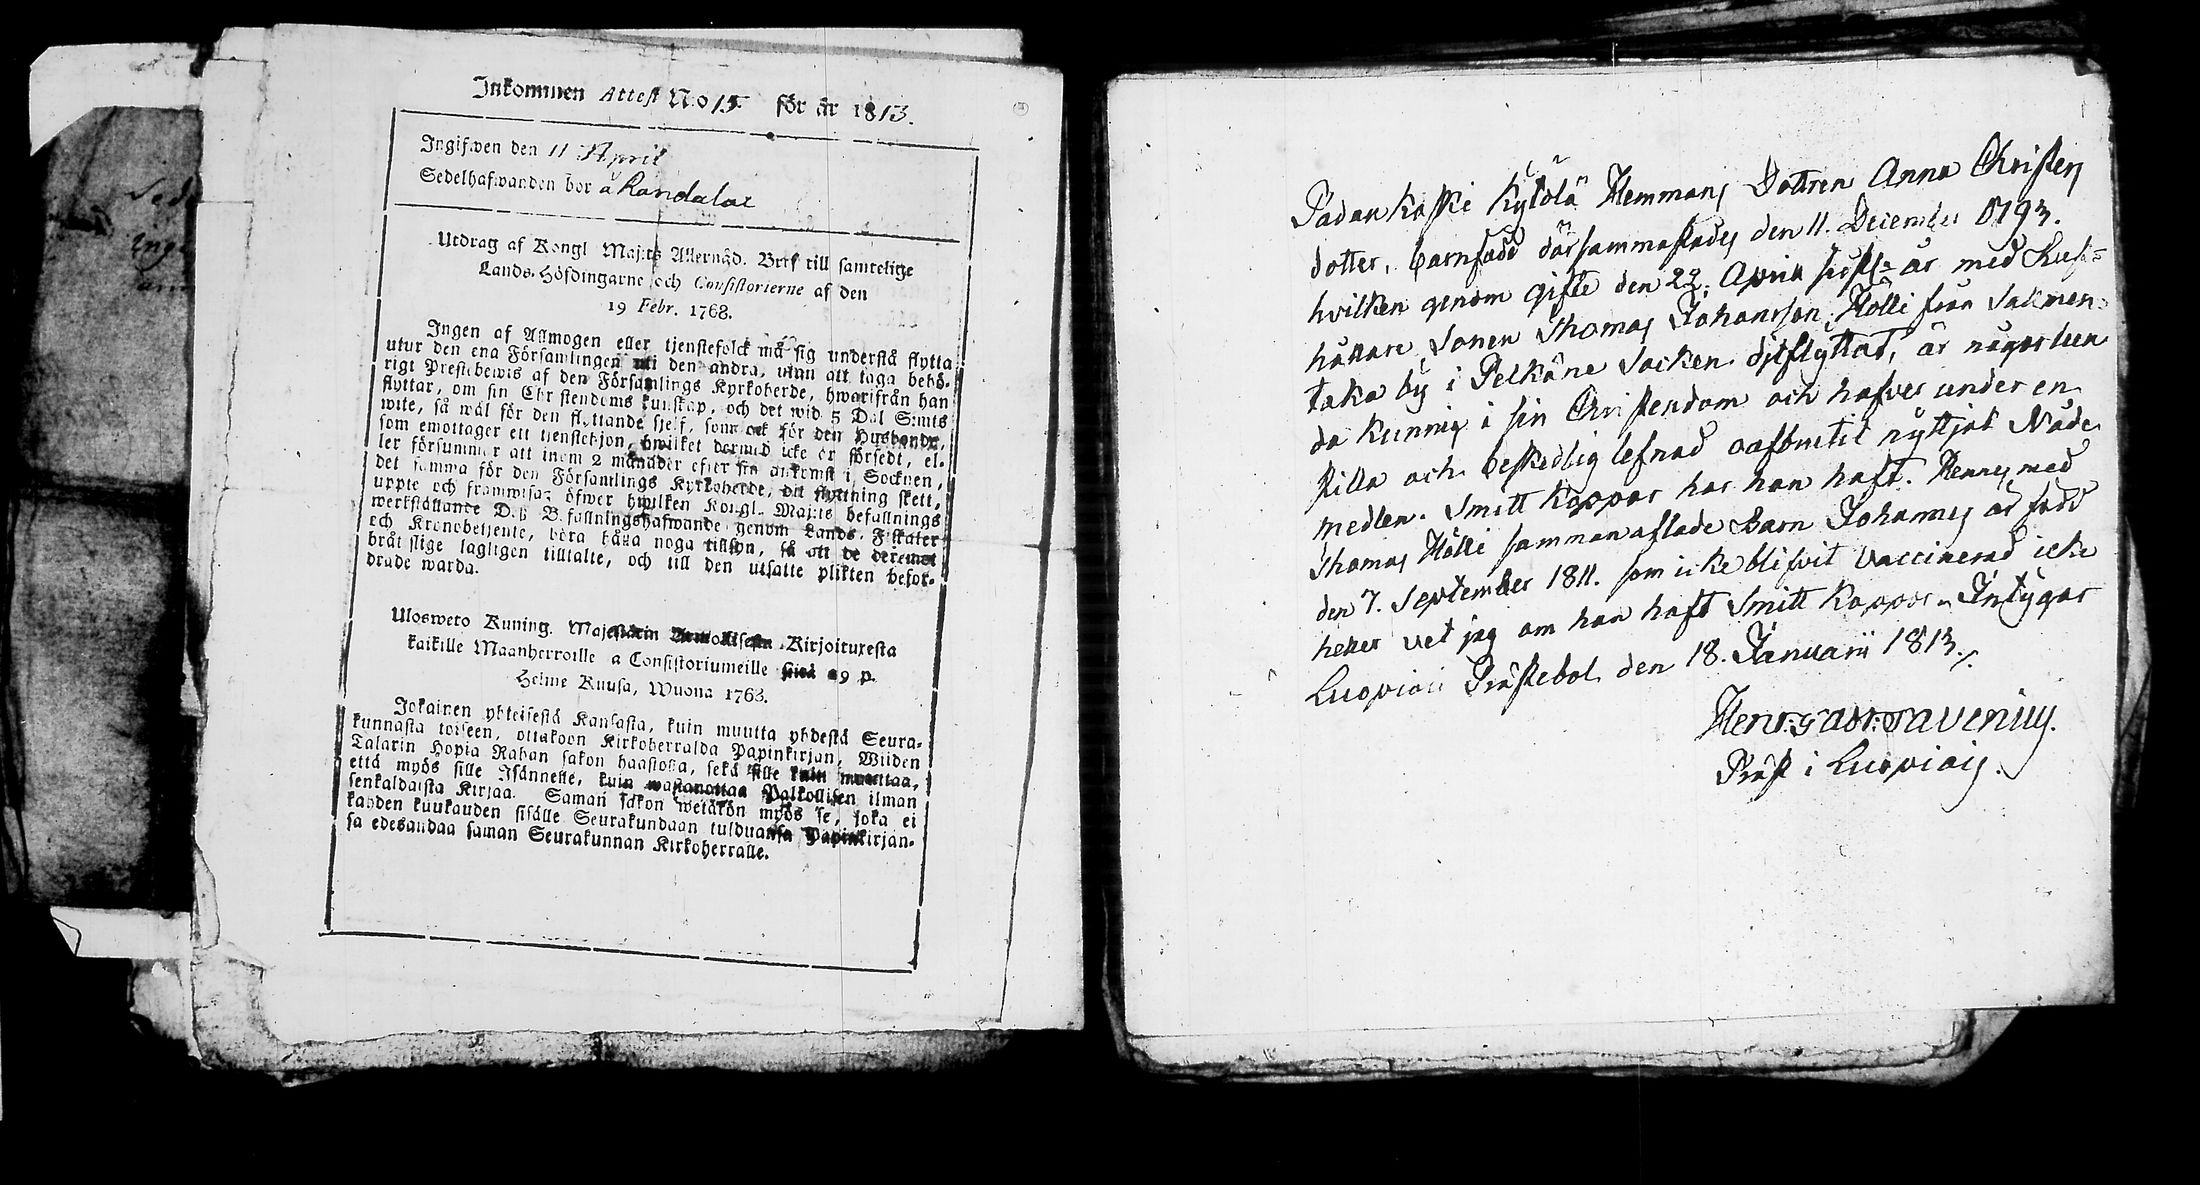 Inkommen Attest No 15 för år 1813.
Ingifwen den 11 April
Sedelhafwanden bor å Randalax
Utdrag af Kongl Maj:ts Allernåd. Bref till samtelige
Lands-Höfdingarne och Consistorierne af den
19 Febr. 1768.
Ingen af Allmogen eller tjenstefolck må sig understå flytta
utur den ena Församlingen uti den andra, utan att taga behö-
rigt Prestebewis af den Församlings Kyrkoherde, hwarifrån han
flyttar, om sin Christendoms kunskap, och det wid 5 Dal S:mts
wite, så wäl för den flyttande sjelf, som ock för den Husbonde,
som emottager ett tjenstehjon, hwilket dermed icke är försedt, el-
ler försummar att inom 2 månader efter sin ankomst i Socknen,
det samma för den Församlings Kyrkoherde, dit flyttning skett,
uppte och framwisa; öfwer hwilken Kongl. Maj:ts befallnings
werkställande D:ß Befallningshafwande genom Lands-Fiskaler
och Kronobetjente, böra hålla noga tillsyn, så att de deremot
bråtslige lagligen tilltalte, och till den utsatte plikten befor-
drade warda.
Ulosweto Kuning. Majestetin Armollisesta Kirjoituxesta
kaikille Maanherroille a Consistoriumeille siitä 19 p.
Helme Kuusa, Wuona 1768.
Jokainen yhteisestä Kansasta, kuin muutta yhdestä Seura-
kunnasta toiseen, ottakoon Kirkoherralda Papinkirjan, Wiiden
Talarin Hopia Rahan sakon haastolla, sekä sille kuin muuttaa,
että myös sille Isännelle, kuin wastanottaa Palkollisen ilman
senkaldaista Kirjaa. Saman sakon wetäkön myös se, joka ei
kahden kuukauden sisälle Seurakundaan tulduansa Papinkirjan-
sa edesandaa saman Seurakunnan Kirkoherralle.
Padankoski Kytölä Hemmans Dottren Anna Christers
dotter, barnfödd därsammastades den 11. December 1793.
hvilken genom gifte den 22. April sistl. år med Kus=
hållare Sonen Thomas Johansson Hölli från Salmen=
taka by i Pelkäne Socken ditflyttat, är någorlun
da kunnig i sin Christendom och hafver under en
stilla och beskedlig lefnad oafbrutit nyttjat Nåde
medlen. Smitt Koppor har hon haft. Hennes med
Thomas Hölli sammanaflade Barn Johannes är född
den 7. September 1811. som icke blifvit vaccinerad icke
heller vet jag om han haft Smitt Koppor. Intygar
Luopiois Prästebol den 18. Januarii 1813.
Henr: Gabr: Tavenius.
Präst i Luopiois.